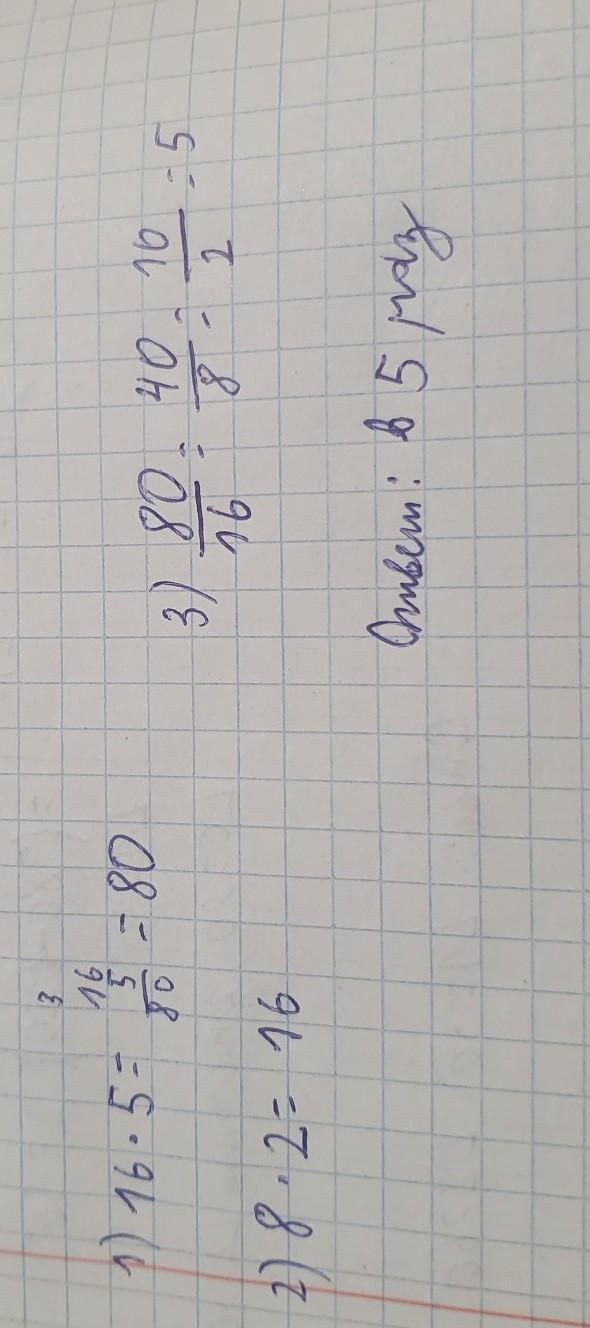 3
1) 16 · 5 = 16 5 80 = 80
2) 8 · 2 = 16
3) 80/16 = 40/8 = 16/2 = 5
Ответ: в 5 раз